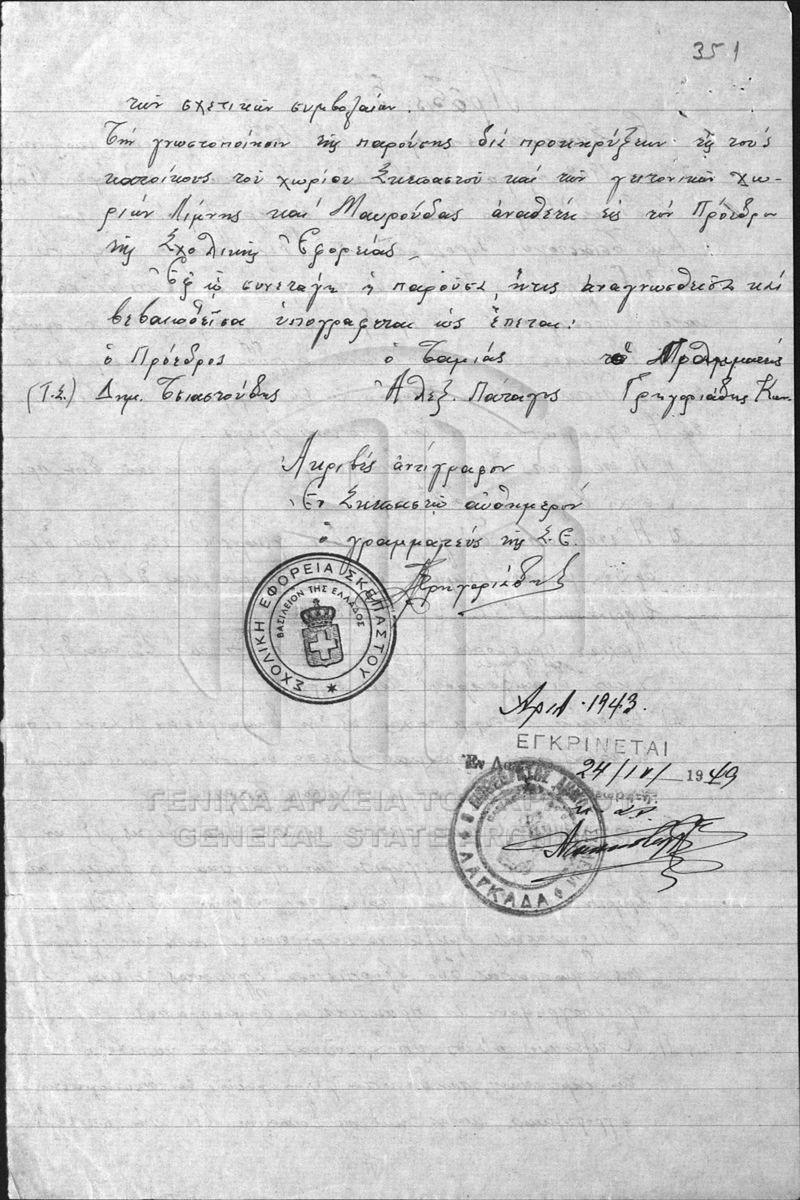 351
τῶν σχετικῶν συμβολαίων.
Τὴν γνωστοποίησιν τῆς παρούσης διὰ προκηρύξεων εἰς τοὺς
κατοίκους τοῦ χωρίου Σκεπαστοῦ καὶ τῶν γειτονικῶν χω-
ριῶν Λίμνης καὶ Μαυρούδας ἀναθέτει εἰς τὸν Πρόεδρον
τῆς Σχολικῆς Ἐφορείας
Ἐφ' ᾧ συνετάγη ἡ παροῦσα ἥτις ἀναγνωσθεῖσα καὶ
βεβαιωθεῖσα ὑπογράφεται ὡς ἕπεται:
ὁ Πρόεδρος ὁ Ταμίας
(Τ.Σ.) Δημ. Τσιαστούδης Ἀλεξ. Πάταγης Γρηγοριάδης Κων.
Ἀκριβὲς ἀντίγραφον
Ἐν Σκεπαστῷ αὐθημερόν
ὁ γραμματεὺς τῆς Σ.Ε.
Γρηγοριάδης
ΣΧΟΛΙΚΗ ΕΦΟΡΕΙΑ ΣΚΕΠΑΣΤΟΥ
ΒΑΣΙΛΕΙΟΝ ΤΗΣ ΕΛΛΑΔΟΣ
Ἀριθ. 1943.
ΕΓΚΡΙΝΕΤΑΙ
Ἐν 24/IV/ 1949
ΛΑΓΚΑΔΑ
ΓΕΝΙΚΑ ΑΡΧΕΙΑ ΤΟΥ ΚΡΑΤΟΥΣ
GENERAL STATE ARCHIVES